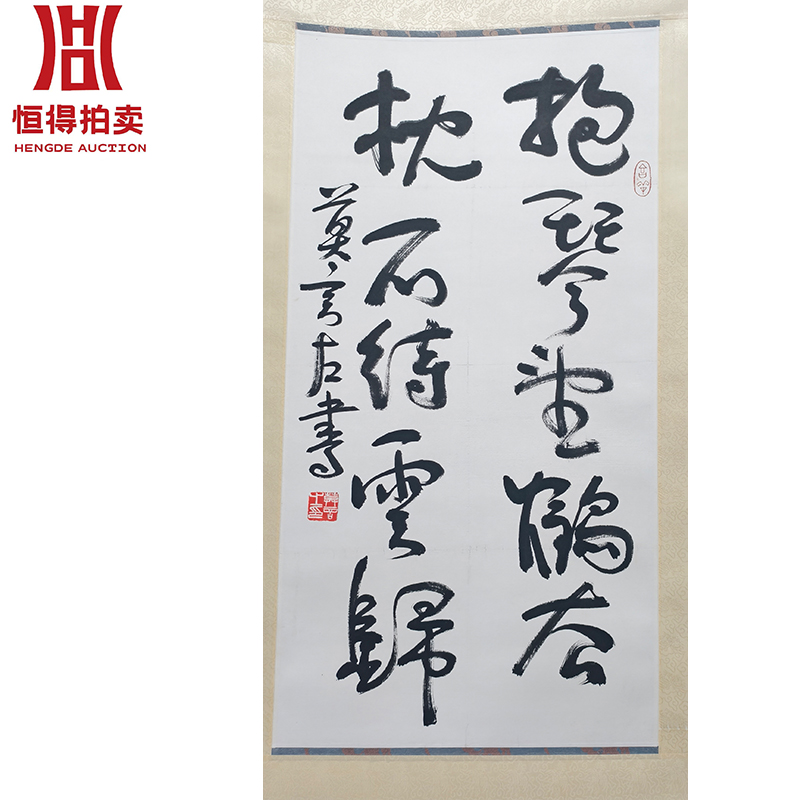 恒得拍卖
HENGDE AUCTION
抱琴望鶴去
枕石待雲歸
莫言左書